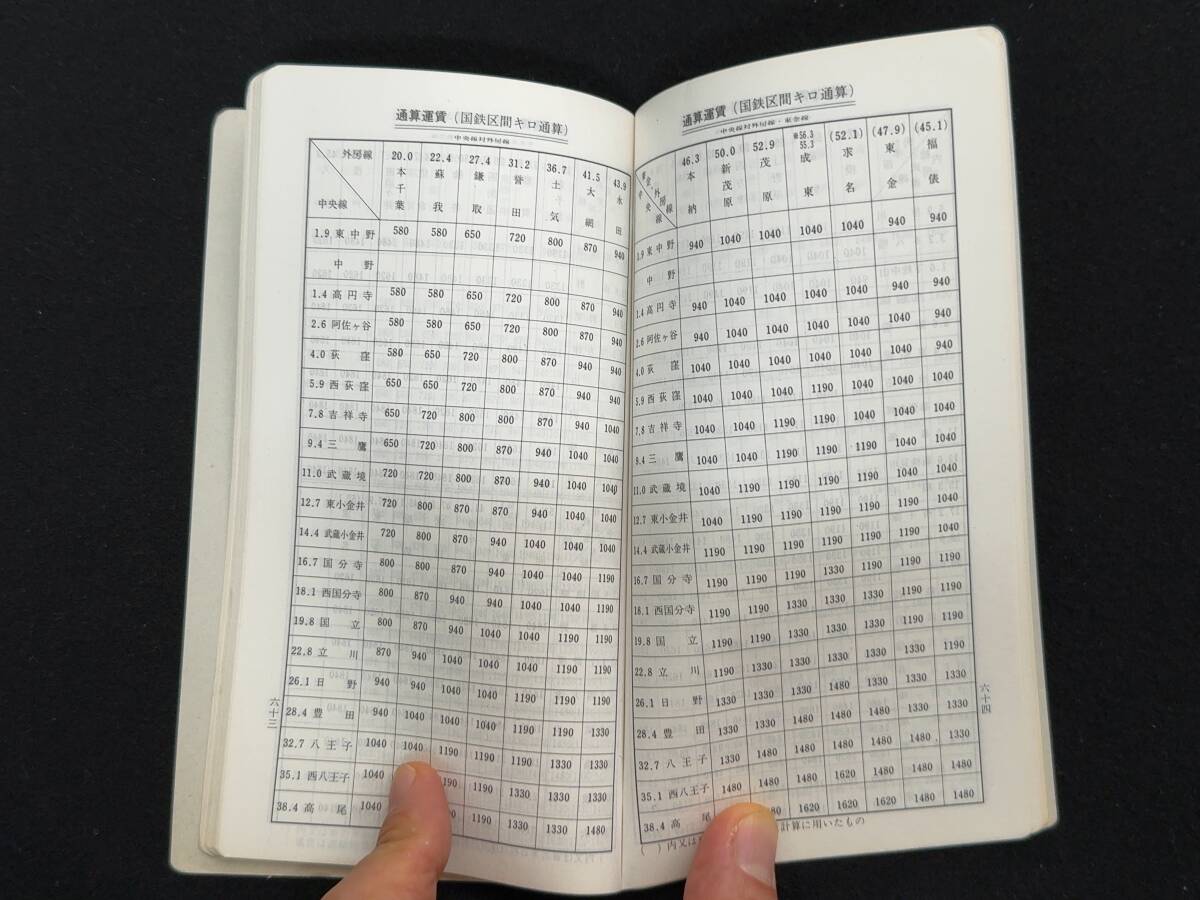 通算運賃(国鉄区間キロ通算)
中央線対外房線
外房線 20.0 22.4 27.4 31.2 36.7 41.5 43.9
中央線 本千葉 蘇我 鎌取 誉田 土気 大網 永田
1.9 東中野 580 580 650 720 800 870 940
中野
1.4 高円寺 580 580 650 720 800 870 940
2.6 阿佐ヶ谷 580 580 650 720 800 870 940
4.0 荻窪 580 650 720 720 800 940 940
5.9 西荻窪 650 650 720 800 870 940 940
7.8 吉祥寺 650 720 800 800 870 940 1040
9.4 三鷹 650 720 800 870 940 1040 1040
11.0 武蔵境 720 720 800 870 940 1040 1040
12.7 東小金井 720 800 870 870 940 1040 1040
14.4 武蔵小金井 720 800 870 940 1040 1040 1040
16.7 国分寺 800 800 870 940 1040 1040 1190
18.1 西国分寺 800 870 940 940 1040 1040 1190
19.8 国立 800 870 940 1040 1040 1190 1190
22.8 立川 870 940 1040 1040 1040 1190 1190
26.1 日野 940 940 1040 1040 1190 1190 1190
28.4 豊田 940 1040 1040 1040 1190 1190 1330
32.7 八王子 1040 1040 1190 1190 1190 1330 1330
35.1 西八王子 1040 190 1190 1330 1330 1330
38.4 高尾 1040 190 1190 1330 1330 1480
六十三
通算運賃(国鉄区間キロ通算)
中央線対外房線・東金線
東金・外房線 46.3 50.0 52.9 ※56.3 55.3 (52.1) (47.9) (45.1)
中央線 本納 新茂原 茂原 成東 求名 東金 福俵
1.9 東中野 940 1040 1040 1040 1040 940 940
中野
1.4 高円寺 940 1040 1040 1040 1040 940 940
2.6 阿佐ヶ谷 940 1040 1040 1040 1040 1040 940
4.0 荻窪 1040 1040 1040 1040 1040 1040 940
5.9 西荻窪 1040 1040 1040 1190 1040 1040 1040
7.8 吉祥寺 1040 1040 1190 1190 1040 1040 1040
9.4 三鷹 1040 1040 1190 1190 1190 1040 1040
11.0 武蔵境 1040 1190 1190 1190 1190 1040 1040
12.7 東小金井 1040 1190 1190 1190 1190 1190 1040
14.4 武蔵小金井 1190 1190 1190 1190 1190 1190 1040
16.7 国分寺 1190 1190 1190 1330 1190 1190 1190
18.1 西国分寺 1190 1190 1330 1330 1330 1190 1190
19.8 国立 1190 1190 1330 1330 1330 1190 1190
22.8 立川 1190 1330 1330 1330 1330 1330 1190
26.1 日野 1330 1330 1330 1480 1330 1330 1330
28.4 豊田 1330 1330 1480 1480 1480 1330 1330
32.7 八王子 1330 1480 1480 1480 1480 1480 1330
35.1 西八王子 1480 1480 1480 1620 1480 1480 1480
38.4 高尾 1480 1620 1620 1620 1480 1480
( )内又は 計算に用いたもの
六十四